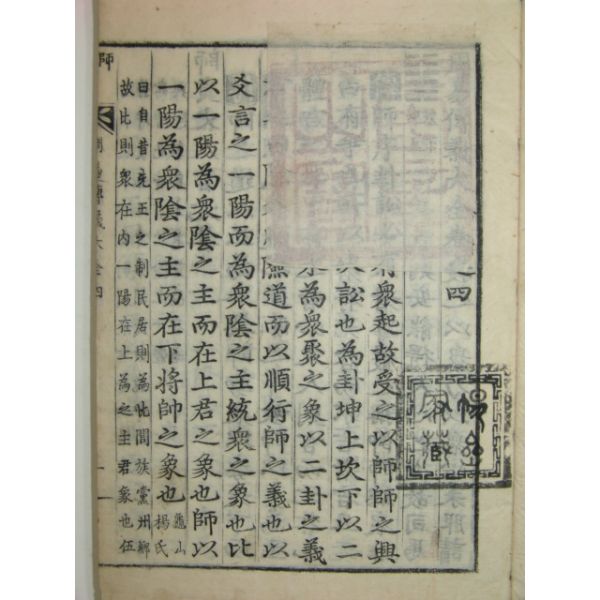 周易傳義大全卷之四
師序卦訟必有衆起故受之以師師之興
由有爭也所以次訟也為卦坤上坎下以二
體言之水為衆聚之象以二卦之義
險道而以順行師之義也以
爻言之一陽而為衆陰之主統衆之象也比
以一陽為衆陰之主而在上君之象也師以
一陽為衆陰之主而在下將帥之象也龜山
楊氏
曰自昔先王之制民居則為比閭族黨州鄉
故比則衆在內一陽在上為之主君象也伍
師
周易傳義大全四
一